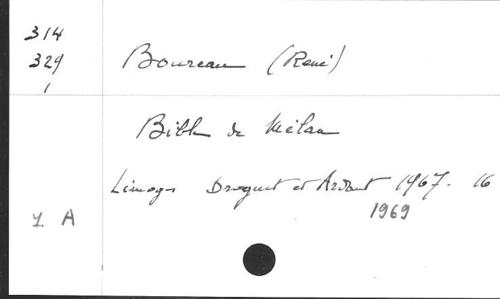 314
329 Boureau (René)
1
Bibl. de Mélan
Limoges Droguet et Ardant 1967. 16
1969
y. A